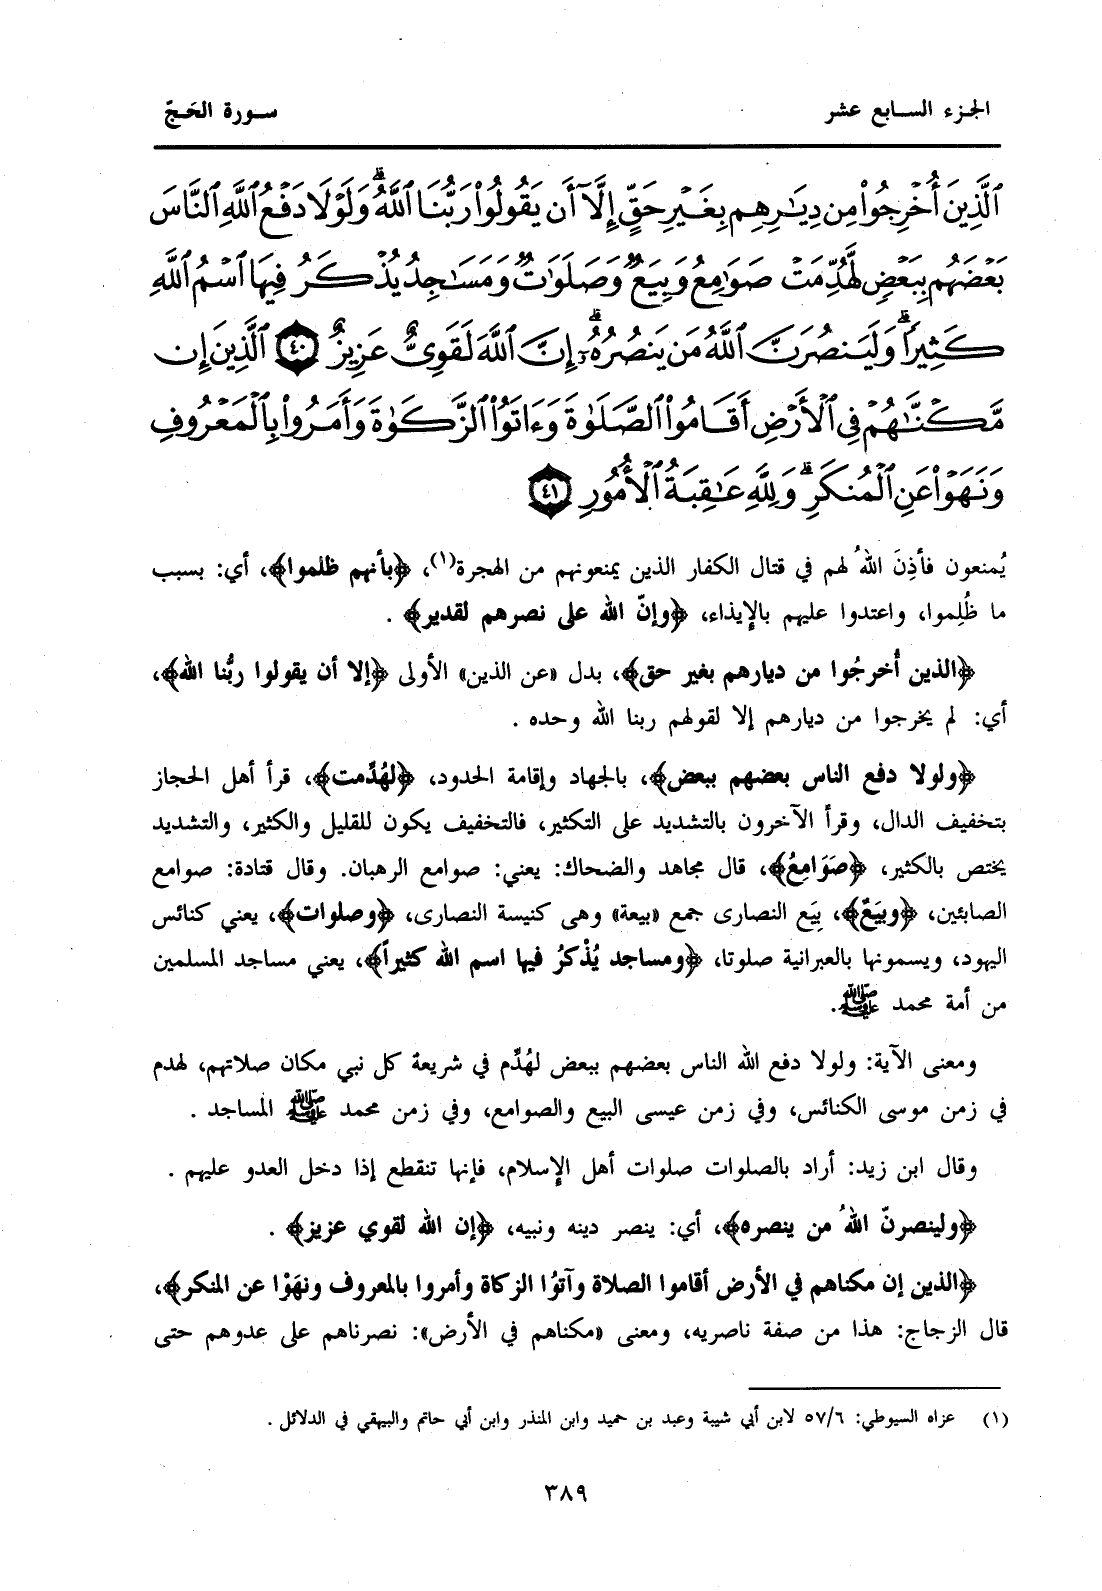 الجزء السابع عشر
سورة الحَجّ
ٱلَّذِينَ أُخْرِجُوا۟ مِن دِيَـٰرِهِم بِغَيْرِ حَقٍّ إِلَّآ أَن يَقُولُوا۟ رَبُّنَا ٱللَّهُ ۗ وَلَوْلَا دَفْعُ ٱللَّهِ ٱلنَّاسَ
بَعْضَهُم بِبَعْضٍ لَّهُدِّمَتْ صَوَٰمِعُ وَبِيَعٌ وَصَلَوَٰتٌ وَمَسَـٰجِدُ يُذْكَرُ فِيهَا ٱسْمُ ٱللَّهِ
كَثِيرًا ۗ وَلَيَنصُرَنَّ ٱللَّهُ مَن يَنصُرُهُۥٓ ۗ إِنَّ ٱللَّهَ لَقَوِىٌّ عَزِيزٌ ٤٠ ٱلَّذِينَ إِن
مَّكَّنَّـٰهُمْ فِى ٱلْأَرْضِ أَقَامُوا۟ ٱلصَّلَوٰةَ وَءَاتَوُا۟ ٱلزَّكَوٰةَ وَأَمَرُوا۟ بِٱلْمَعْرُوفِ
وَنَهَوْا۟ عَنِ ٱلْمُنكَرِ ۗ وَلِلَّهِ عَـٰقِبَةُ ٱلْأُمُورِ ٤١
يُمنعون فأذِنَ اللهُ لهم في قتال الكفار الذين يمنعونهم من الهجرة(١)، ﴿بأنهم ظلموا﴾، أي: بسبب
ما ظُلِموا، واعتدوا عليهم بالإيذاء، ﴿وإنّ الله على نصرهم لقدير﴾ .
﴿الذين أُخرجُوا من ديارهم بغير حق﴾، بدل «عن الذين» الأولى ﴿إلا أن يقولوا ربُّنا الله﴾،
أي: لم يخرجوا من ديارهم إلا لقولهم ربنا الله وحده .
﴿ولولا دفع الناس بعضهم ببعض﴾، بالجهاد وإقامة الحدود، ﴿لهُدِّمت﴾، قرأ أهل الحجاز
بتخفيف الدال، وقرأ الآخرون بالتشديد على التكثير، فالتخفيف يكون للقليل والكثير، والتشديد
يختص بالكثير، ﴿صَوَامِعُ﴾، قال مجاهد والضحاك: يعني: صوامع الرهبان. وقال قتادة: صوامع
الصابئين، ﴿وبيَعٌ﴾، بِيَع النصارى جمع «بيعة» وهى كنيسة النصارى، ﴿وصلوات﴾، يعني كنائس
اليهود، ويسمونها بالعبرانية صلوتا، ﴿ومساجد يُذْكرُ فيها اسم الله كثيراً﴾، يعني مساجد المسلمين
من أمة محمد ﷺ.
ومعنى الآية: ولولا دفع الله الناس بعضهم ببعض لهُدِّم في شريعة كل نبي مكان صلاتهم، لهدم
في زمن موسى الكنائس، وفي زمن عيسى البيع والصوامع، وفي زمن محمد ﷺ المساجد .
وقال ابن زيد: أراد بالصلوات صلوات أهل الإسلام، فإنها تنقطع إذا دخل العدو عليهم .
﴿ولينصرنّ اللهُ من ينصره﴾، أي: ينصر دينه ونبيه، ﴿إن الله لقوي عزيز﴾ .
﴿الذين إن مكناهم في الأرض أقاموا الصلاة وآتوُا الزكاة وأمروا بالمعروف ونهَوْا عن المنكر﴾،
قال الزجاج: هذا من صفة ناصريه، ومعنى «مكناهم في الأرض»: نصرناهم على عدوهم حتى
(١) عزاه السيوطي: ٥٧/٦ لابن أبي شيبة وعبد بن حميد وابن المنذر وابن أبي حاتم والبيهقي في الدلائل .
٣٨٩